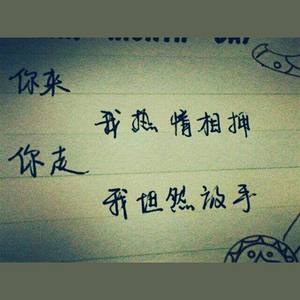 你来
我热情相拥
你走
我坦然放手